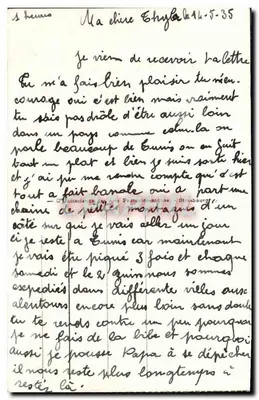 1 heures
Ma chère Thyla le 14-5-35
Je viens de recevoir ta lettre
Tu m'a fais bien plaisir tu m'en-
courage oui c'est bien mais vraiment
tu sais pas drôle d'être aussi loin
dans un pays comme celui la on
parle beaucoup de Tunis on en fait
tout un plat et bien je suis sorti hier
et j'ai pu me rendre compte que c'est
tout a fait banale oui a part une
chaine de petites montagnes d'un
côté sur qui je vais aller un jour
si je reste a Tunis car maintenant
je vais être piqué 3 fois et chaque
samedi et le 2 juin nous sommes
expédiés dans différente villes aux
alentours encore plus loin sans doute
tu te rends contre un peu pourquoi
je me fais de la bile et pourquoi
aussi je pousse Papa à se dépêcher
il nous reste plus longtemps à
rester là.